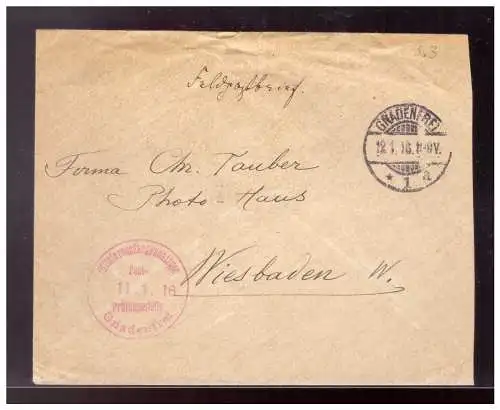 8.3
Feldpostbrief.
GNADENFREI
12.1.16.8-9V.
* 1 a
Firma Chr. Tauber
Photo-Haus
Wiesbaden W.
Post-
11. 1. 16
prüfungsstelle
Gnadenfrei